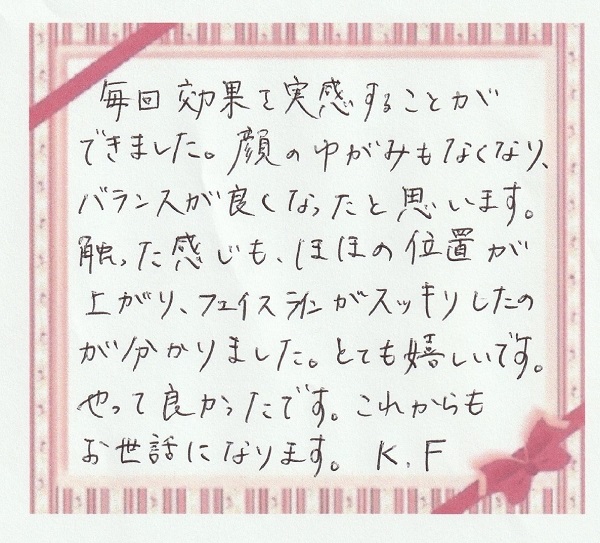 毎回効果を実感することが
できました。顔のゆがみもなくなり、
バランスが良くなったと思います。
触った感じも、ほほの位置が
上がり、フェイスラインがスッキリしたの
が分かりました。とても嬉しいです。
やって良かったです。これからも
お世話になります。 K.F